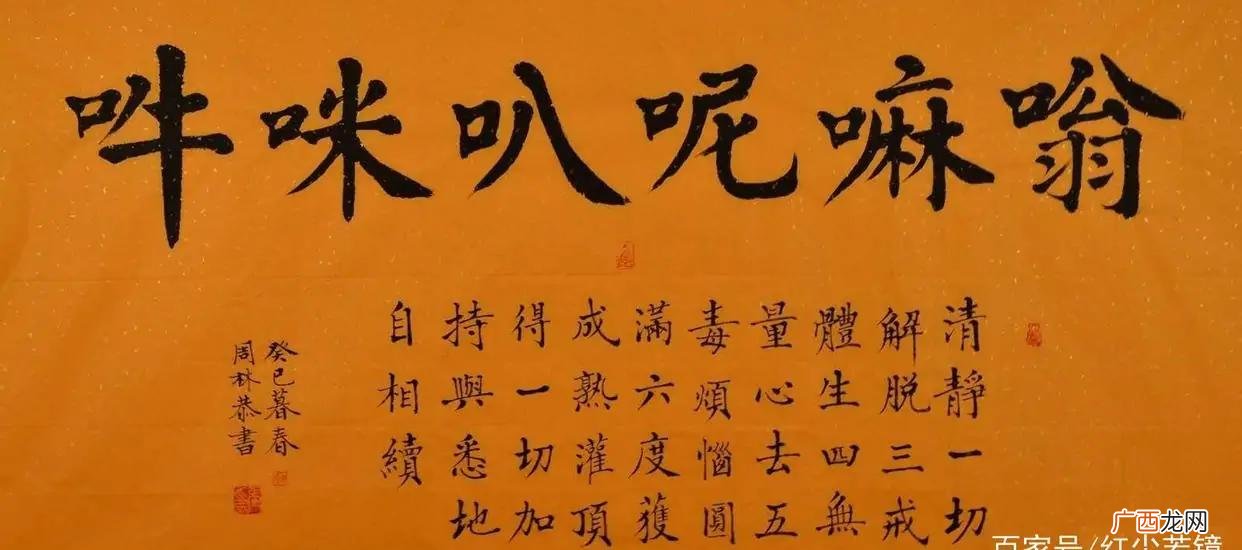 嗡嘛呢叭咪吽
清靜一切
解脱三戒
體生四無
量心去五
毒煩惱圓
滿六度獲
成熟灌頂
得一切加
持與悉地
自相續
癸巳暮春
周林恭書
广西龙网
百家号/